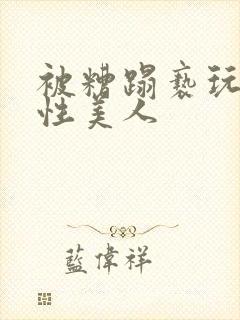 被糟蹋亵玩
性美人
蓝伟祥